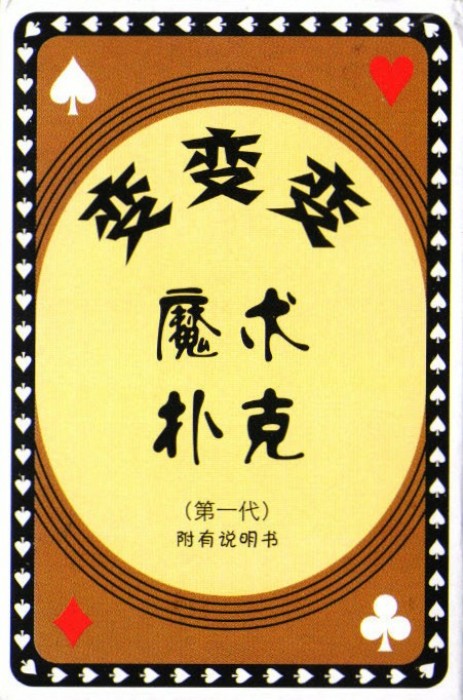 变变变
魔术
扑克
(第一代)
附有说明书